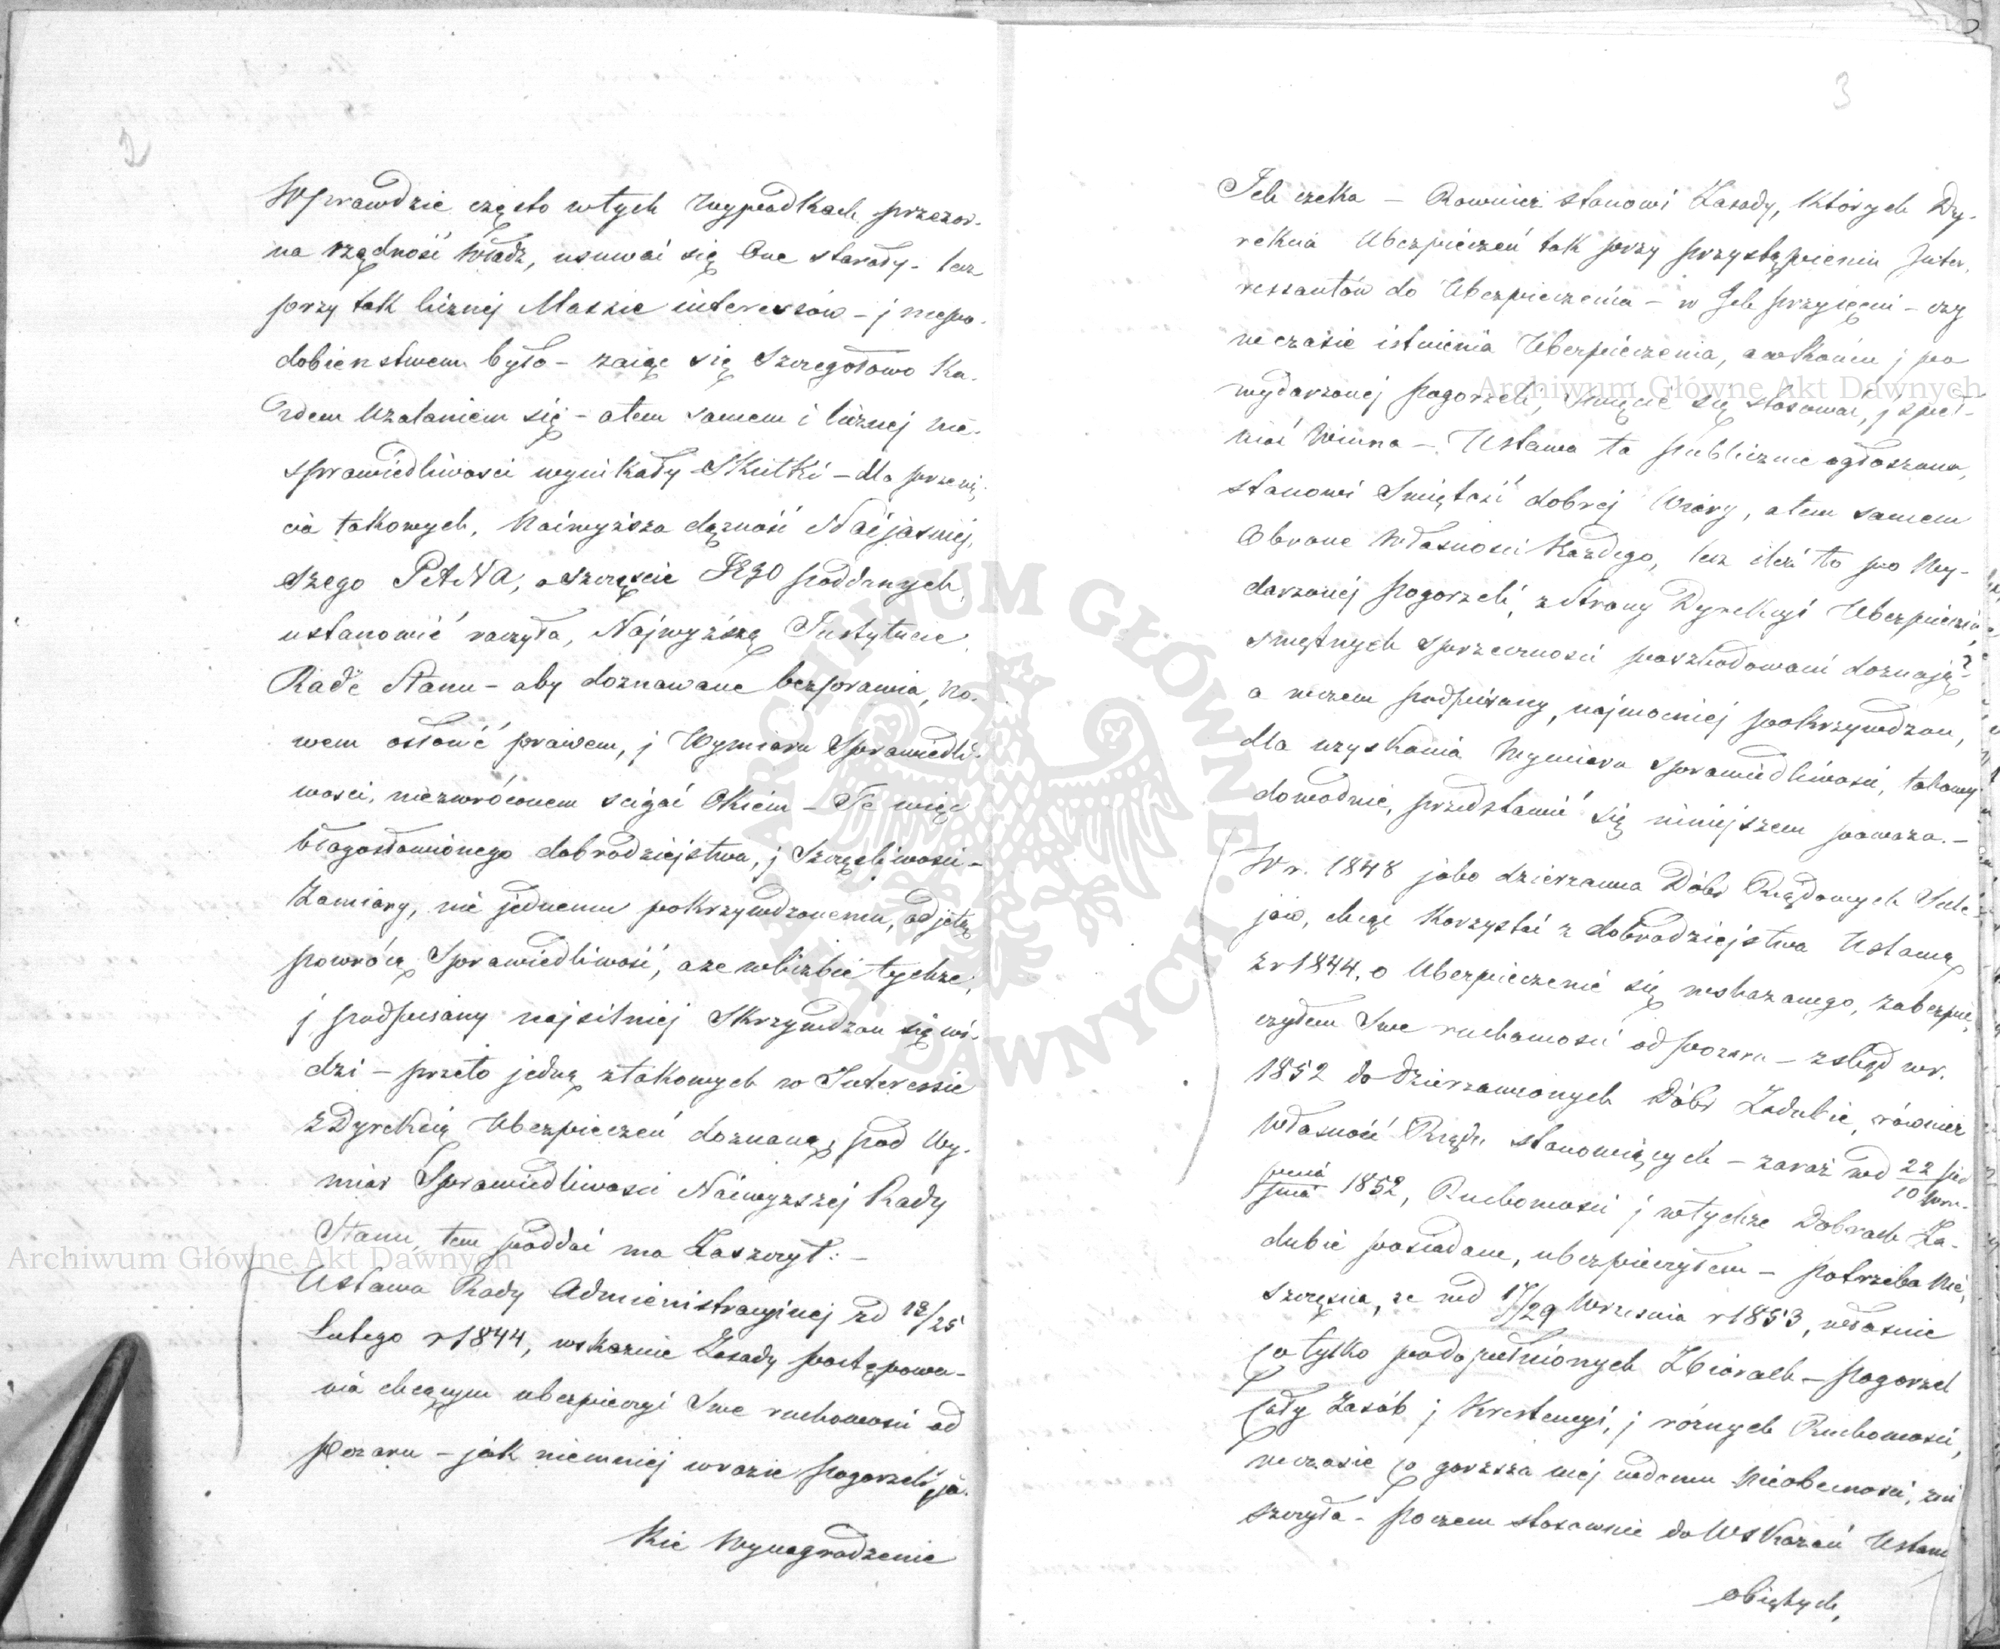 2
Wprawdzie często wtych Wypadkach przezor-
na rządność Władz, usuwać się One starały - lecz
przy tak licznej Massie interessów - j niepo-
dobieństwem było - zająć się Szczegółowo Ka-
żdem Użalaniem się - atem samem i licznej nie-
sprawiedliwości wynikały Skutki - dla przecię-
cia takowych, Naiwyższa dążność Naijaśniej-
szego PANA, o szczęście JEgo poddanych,
ustanowić raczyła, Najwyższą Instytucie
Radę Stanu - aby doznawane bezprawia, No-
wem osłonić prawem, j Wymiaru Sprawiedli-
wości, niezwróconem ścigać Okiem - Te więc
błogosławionego dobrodziejstwa, j Szczęśliwości -
Zamiary, nie jednemu pokrzywdzonemu, odjętą
powrócą Sprawiedliwość, a ze wliczbie tychże,
j podpisany najsilniej Skrzywdzon się wi-
dzi - przeto jedną ztakowych w Interessie
z Dyrekcią Ubezpieczeń doznaną, pod Wy-
miar Sprawiedliwości Naiwyższej Rady
Stanu, tem poddać ma Zaszczyt: -
Ustawa Rady Administracyjnej zd 13/25
Lutego r 1844, wskaznie Zasady postępowa-
nia chcącym ubezpieczyć Swe ruchomości od
pożaru - jak niemniej wrazie pogorzeli, ja-
kie Wynagrodzenie
3
Ich czeka - Rownież stanowi Zasady, Których Dy-
rekcia Ubezpieczeń tak przy przystąpieniu Inter-
ressantów do Ubezpieczenia - w Ich przyjęciu - czy
w czasie istnienia Ubezpieczenia, a wkońcu j po
wydarzonej pogorzeli, Święcie się stosować, j speł-
niać Winna - Ustawa ta publicznie ogłoszona,
stanowi Świętość dobrej Wiary, atem samem
Obronę Własności Każdego, lecz ileż to po Wy-
darzonej pogorzeli, z Strony Dyrekcyi Ubezpieczeń,
smętnych sprzeczności poszkodowani doznają?
a wczem podpisany, najmocniej pokrzywdzon,
dla uzyskania Wymiaru sprawiedliwości, takowy
dowodnie, przedstawić się niniejszem poważa. -
W r. 1848 jako dzierżawca Dóbr Rządowych Sule-
jów, chcąc Korzystać z dobrodziejstwa Ustawą
z r 1844. o Ubezpieczenie się wskazanego, zabezpie-
czyłem Swe ruchomości od pożaru - zstąd wr.
1852 do dzierżawionych Dóbr Zadubie, również
Własność Rządu stanowiących - zaraz wd 22 sier
pnia/śnia 10 Wrze- 1852, Ruchomości j wtychże Dobrach Za-
dubie posiadane, ubezpieczyłem - potrzeba Nie-
szczęścia, że wd 17/29 Września r 1853, właśnie
po tylko podopełnionych Zbiorach - pogorzel
cały Zasób j Krestencyi, j różnych Ruchomości,
wczasie co gorsza mej wdomu Nieobecności, zni
szczyła - poczem stosownie do Wskazań Ustawą
obiętych,
Archiwum Główne Akt Dawnych
Archiwum Główne Akt Dawnych
ARCHIWUM GŁÓWNE AKT DAWNYCH